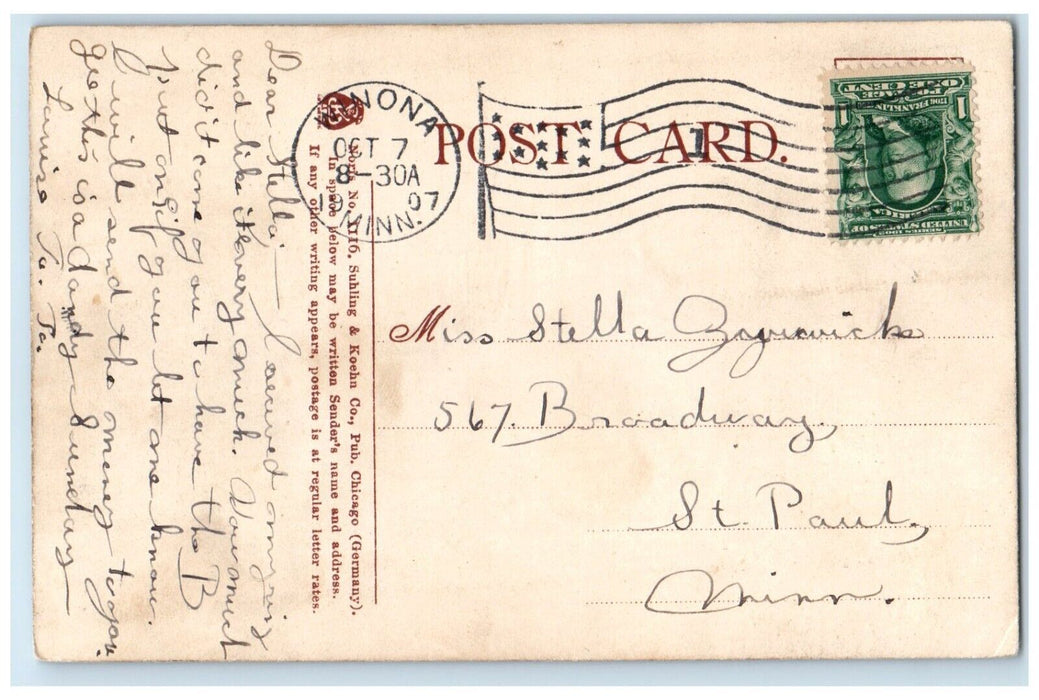 Dear Stella:— I received my ring
and like it very much. Does n't
did it come you to have the B
put on, if you let me know
I will send the money to you.
gee this is a dandy Sunday
Louise
WINONA
OCT 7
8-30A
1907
MINN.
POST CARD.
Series No. 1116, Suhling & Koehn Co., Pub. Chicago (Germany).
In space below may be written Sender's name and address.
If any other writing appears, postage is at regular letter rates.
1 1
POSTAGE
ONE CENT
FRANKLIN
SERIES 1902
UNITED STATES OF
AMERICA
Miss Stella
567. Broadway,
St. Paul,
Minn.